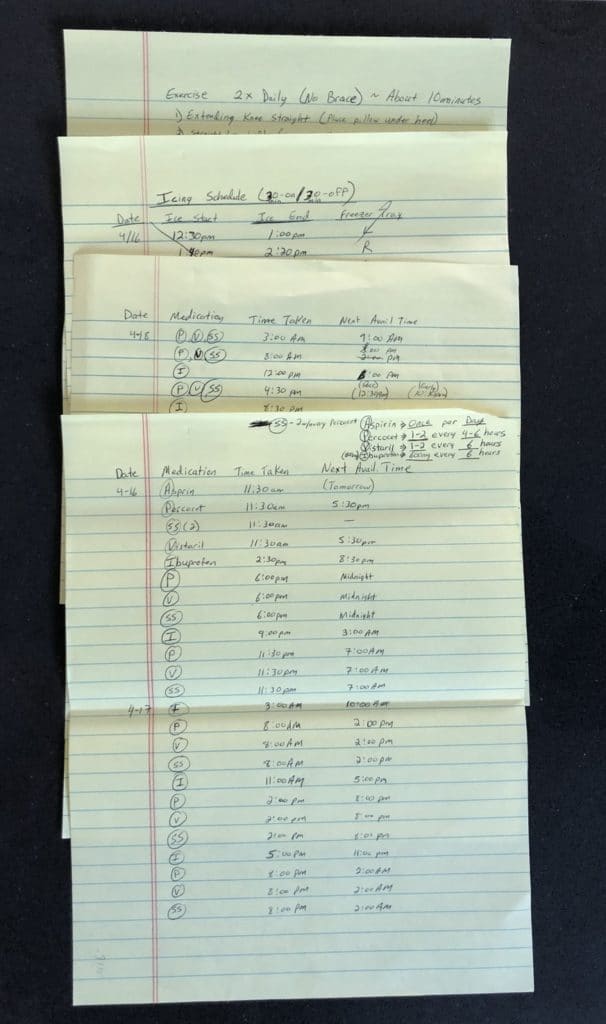 Exercise 2x Daily (No Brace) ~ About 10 minutes
1) Extending Knee Straight (Place pillow under heel)
Icing Schedule (30-on/30-off)
min min
Date Ice Start Ice End Freezer Tray
4/16 12:30pm 1:00pm
1:40pm 2:20pm R
Date Medication Time Taken Next Avail Time
4-18 P, V, SS 3:00 Am 9:00 Am
P, N, SS 8:00 Am pm
I 12:00 pm 6:00 Pm
P V, SS 4:30 pm
I 8:30 pm
SS - 2 w/every Percocet
Aspirin → Once per Day
Percocet → 1-2 every 4-6 hours
Vistaril → 1-2 every 6 hours
Ibuprofen → every 6 hours
Date Medication Time Taken Next Avail. Time
4-16 Asprin 11:30am (Tomorrow)
Percocet 11:30am 5:30pm
SS (2) 11:30am —
Vistaril 11:30am 5:30pm
Ibuprofen 2:30pm 8:30pm
P 6:00pm Midnight
V 6:00pm Midnight
SS 6:00pm Midnight
I 9:00pm 3:00AM
P 11:30pm 7:00AM
V 11:30pm 7:00AM
SS 11:30pm 7:00AM
4-17 I 3:00AM 10:00AM
P 8:00AM 2:00pm
V 8:00AM 2:00pm
SS 8:00AM 2:00pm
I 11:00AM 5:00pm
P 2:00 pm 8:00 pm
V 2:00 pm 8:00 pm
SS 2:00 pm 8:00 pm
I 5:00 pm 11:00 pm
P 8:00 pm 2:00AM
V 8:00 pm 2:00AM
SS 8:00 pm 2:00AM